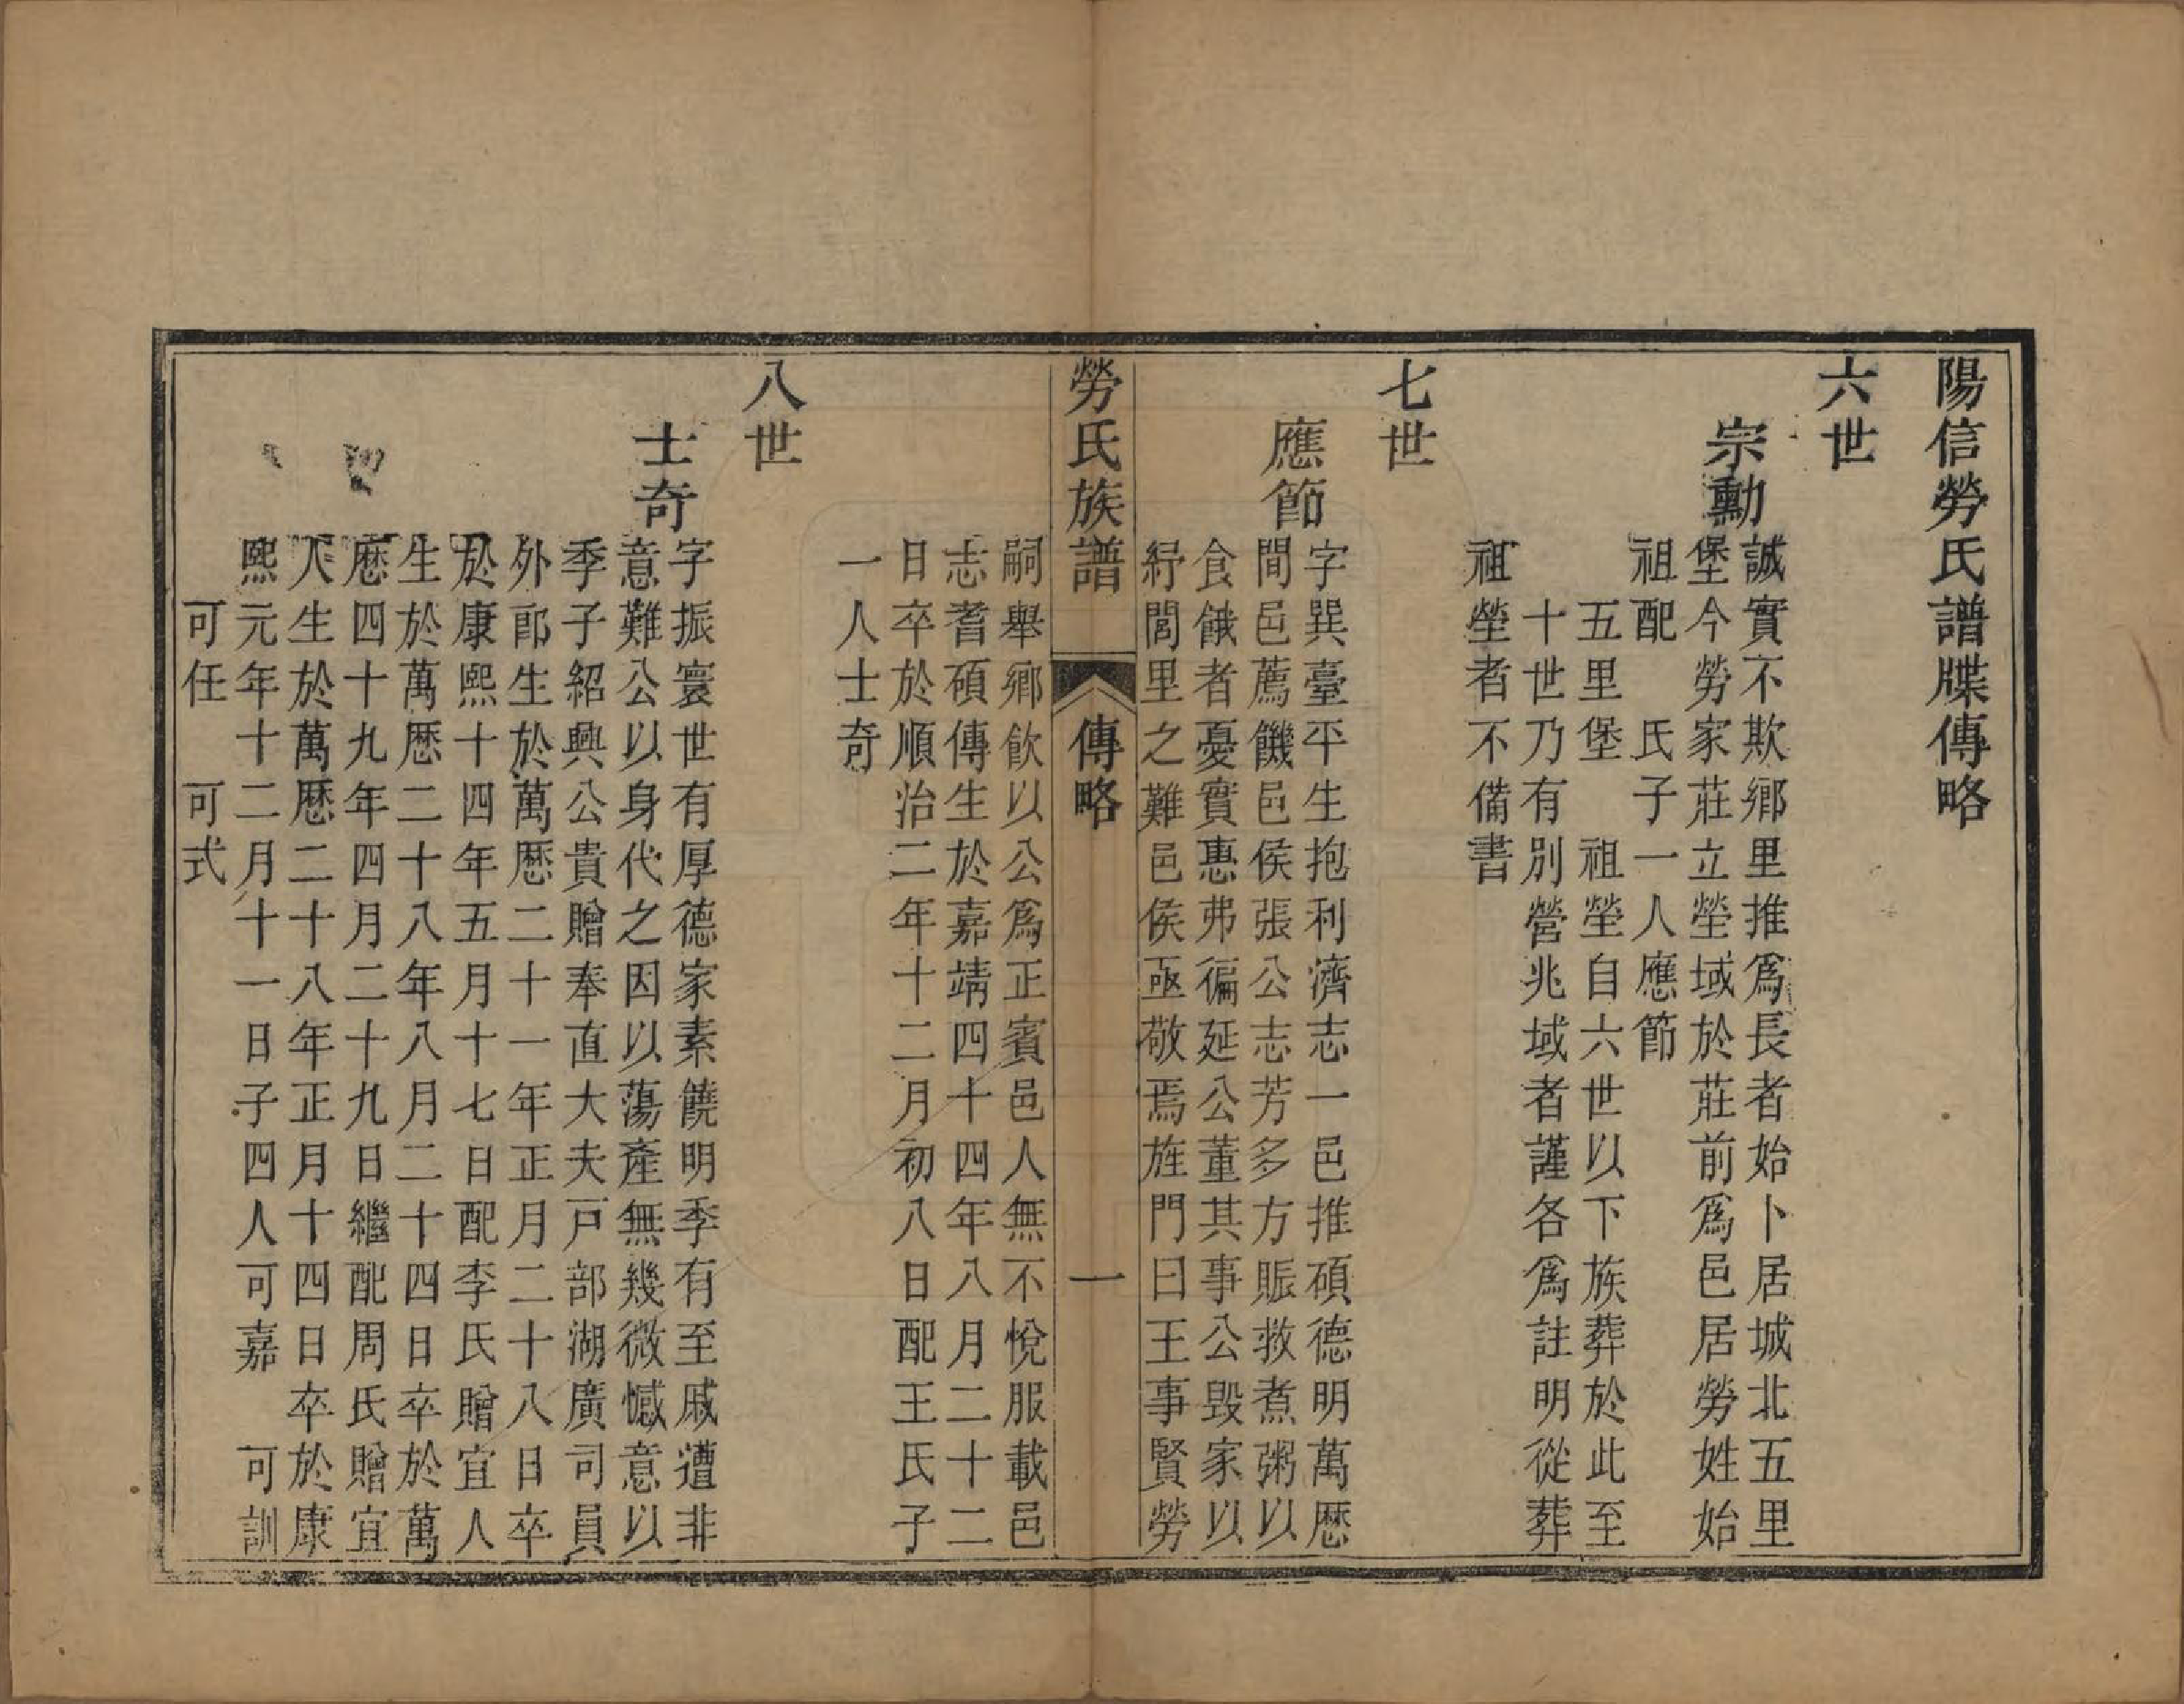 陽信勞氏譜牒傳略
六世
宗勳
誠實不欺鄉里推爲長者始卜居城北五里
堡今勞家莊立塋域於莊前爲邑居勞姓始
祖配　氏子一人應節
五里堡　祖塋自六世以下族葬於此至
十世乃有別營兆域者謹各爲註明從葬
祖塋者不備書
七世
應節
字巽臺平生抱利濟志一邑推碩德明萬厯
間邑薦饑邑侯張公志芳多方賑救煮粥以
食餓者憂實惠弗徧延公董其事公毀家以
紓閭里之難邑侯亟敬焉旌門曰王事賢勞
勞氏族譜　傳略　一
嗣舉鄉飲以公爲正賓邑人無不悅服載邑
志耆碩傳生於嘉靖四十四年八月二十二
日卒於順治二年十二月初八日配王氏子
一人士奇
八世
士奇
字振寰世有厚德家素饒明季有至戚遭非
意難公以身代之因以蕩產無幾微憾意以
季子紹興公貴贈奉直大夫戸部湖廣司員
外郎生於萬厯二十一年正月二十八日卒
於康熙十四年五月十七日配李氏贈宜人
生於萬厯二十八年八月二十四日卒於萬
厯四十九年四月二十九日繼配周氏贈宜
人生於萬厯二十八年正月十四日卒於康
熙元年十二月十一日子四人可嘉　可訓
可任　可式